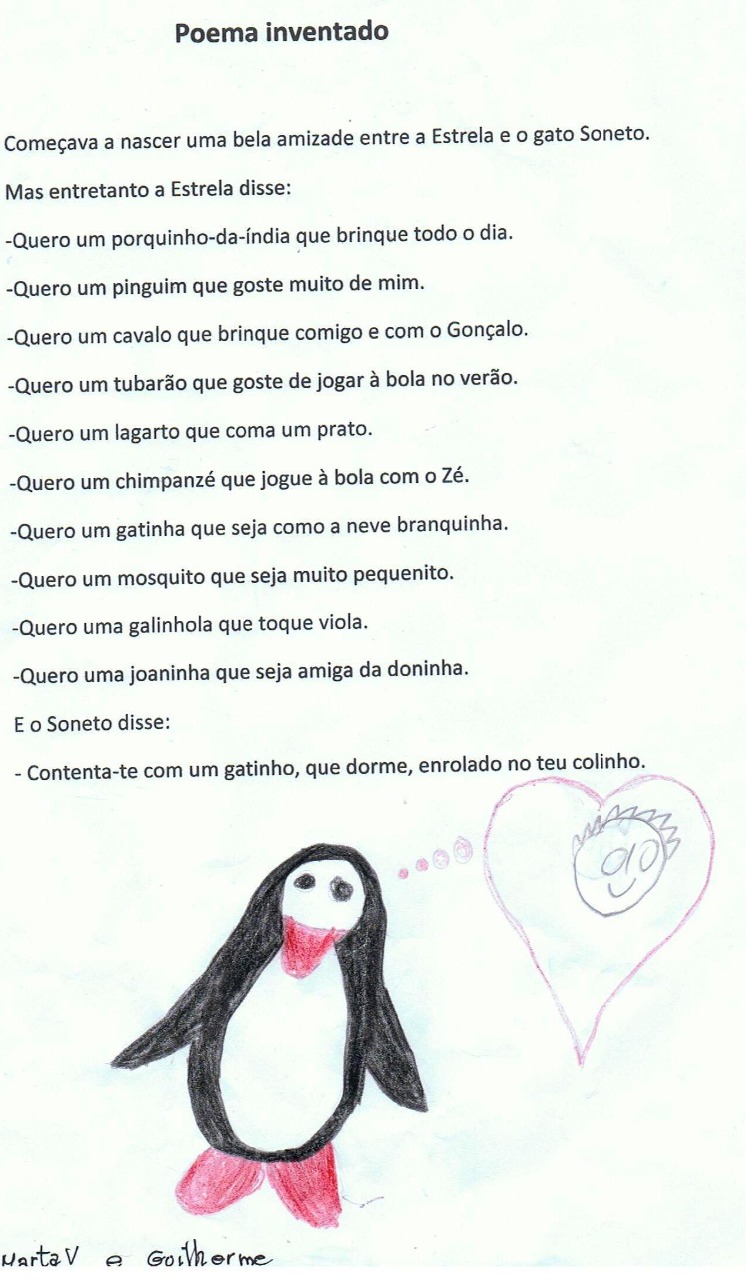 Poema inventado
Começava a nascer uma bela amizade entre a Estrela e o gato Soneto.
Mas entretanto a Estrela disse:
-Quero um porquinho-da-índia que brinque todo o dia.
-Quero um pinguim que goste muito de mim.
-Quero um cavalo que brinque comigo e com o Gonçalo.
-Quero um tubarão que goste de jogar à bola no verão.
-Quero um lagarto que coma um prato.
-Quero um chimpanzé que jogue à bola com o Zé.
-Quero um gatinha que seja como a neve branquinha.
-Quero um mosquito que seja muito pequenito.
-Quero uma galinhola que toque viola.
-Quero uma joaninha que seja amiga da doninha.
E o Soneto disse:
- Contenta-te com um gatinho, que dorme, enrolado no teu colinho.
Marta V e Guilherme